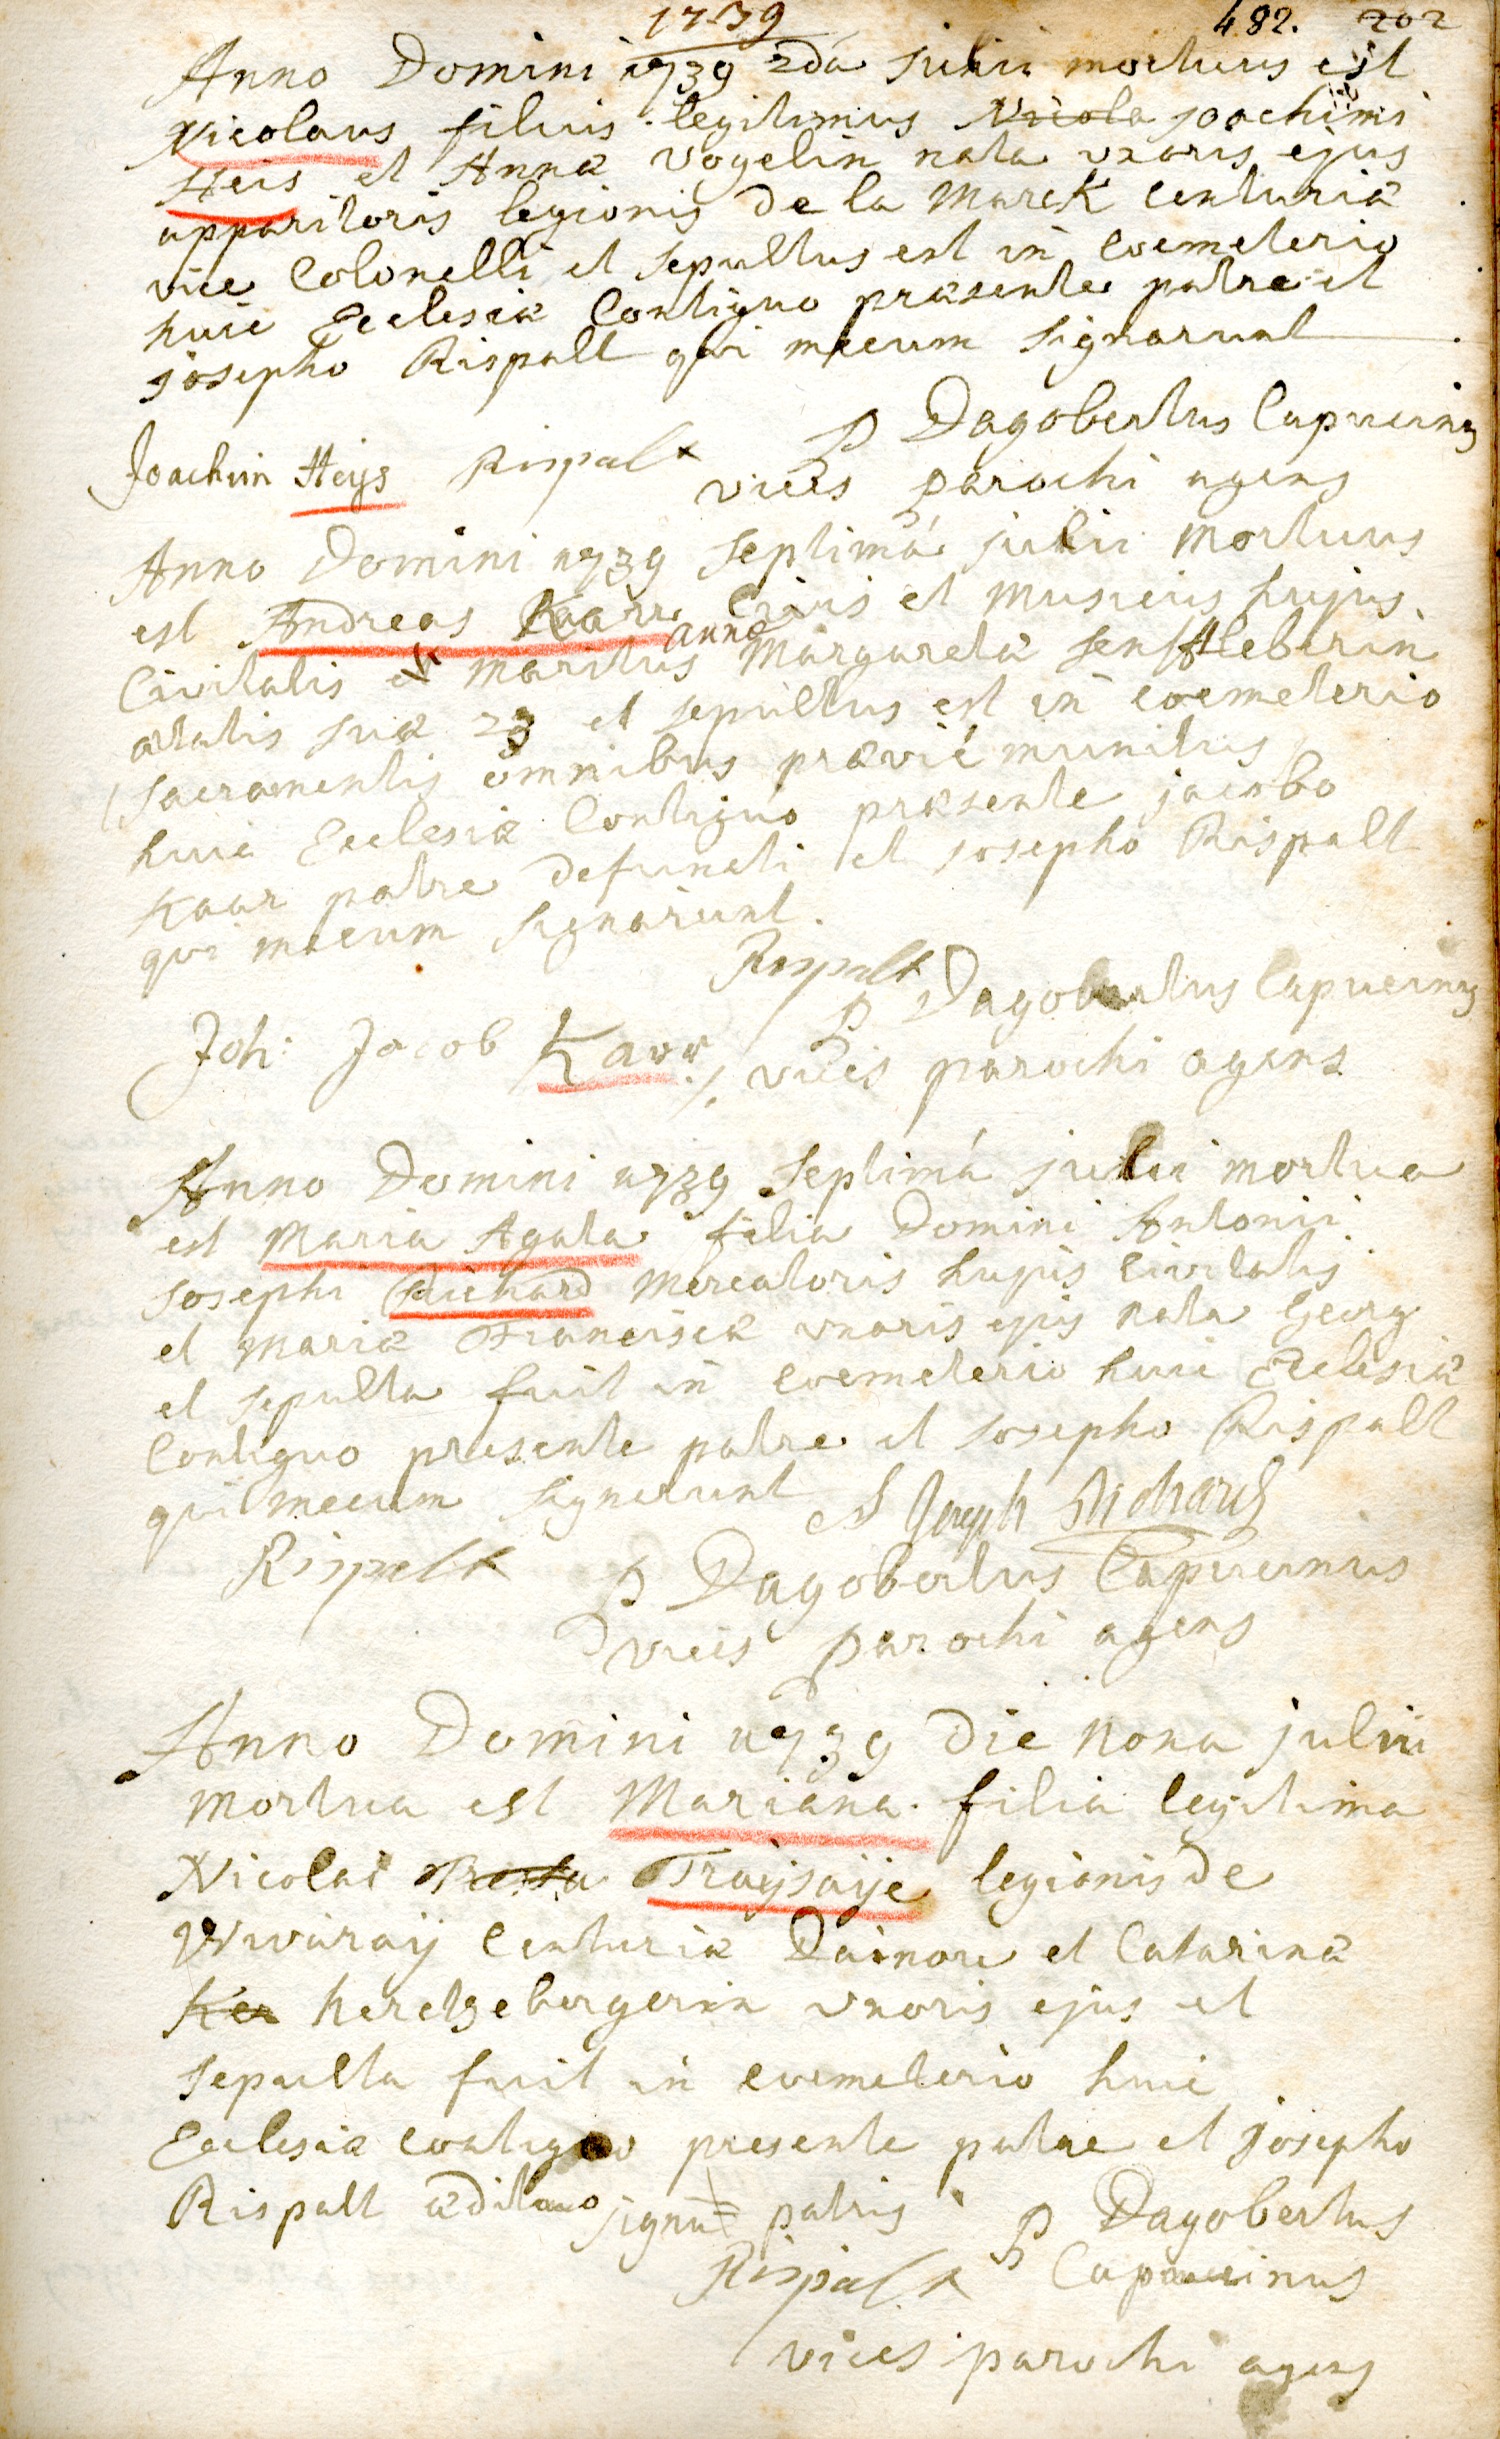 1739 482. 202
Anno Domini 1739 2da Julii mortuus est
Nicolaus filius legitimus Nicola Joachimi
Heis et Annæ Vogelin nata uxoris ejus
apparitoris legionis de la Marck Centuriæ
vice Colonelli et sepultus est in Coemeterio
huic Ecclesiæ Contiguo præsente patre et
josepho Rispalt qui mecum signarunt
P Dagobertus Capucinus
Joachim Heys Rispalt
vices parochi agens
Anno Domini 1739 septimá julii mortuus
est Andreas Kaar Civis et Musicus hujus
Civitatis et maritus anna Margareta senftleberin
ætatis suæ 23 et sepultus est in coemeterio
(sacramentis omnibus prævie munitus)
huic Ecclesiæ Contiguo præsente jacobo
Kaar patre defuncti et josepho Rispalt
qui mecum signarunt.
Rispalt P Dagobertus Capucinus
Joh: Jacob Karr ./. vices parochi agens
Anno Domini 1739 septimá julii mortua
est Maria Agata filia Domini Antonii
Josephi Richard Mercatoris hujus Civitatis
et Mariæ Franciscæ uxoris ejus nata Georg
et sepulta fuit in coemeterio huic Ecclesiæ
Contiguo presente patre et josepho Rispalt
qui mecum signarunt A Joseph Richard
Rispalt P Dagobertus Capucinus
vices parochi agens
Anno Domini 1739 Die Nona julii
mortua est Mariana filia legitima
Nicolai Traysaije legionis de
Vivaraij Centuriæ Dainore et Catarinæ
Ker hertzebergerin uxoris ejus et
sepulta fuit in coemeterio huic
Ecclesiæ contiguo presente patre et Josepho
Rispalt ædituo signu patris P Dagobertus
Rispalt Capucinus
vices parochi agens